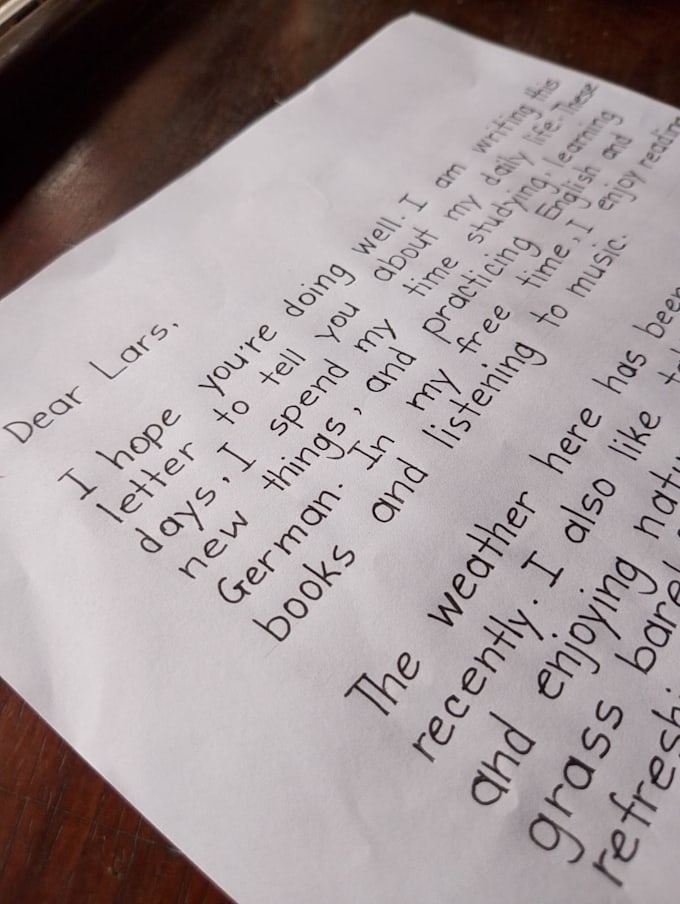 Dear Lars,
I hope you're doing well. I am writing this
letter to tell you about my daily life. These
days, I spend my time studying, learning
new things, and practicing English and
German. In my free time, I enjoy reading
books and listening to music.
The weather here has been
recently. I also like
and enjoying
grass